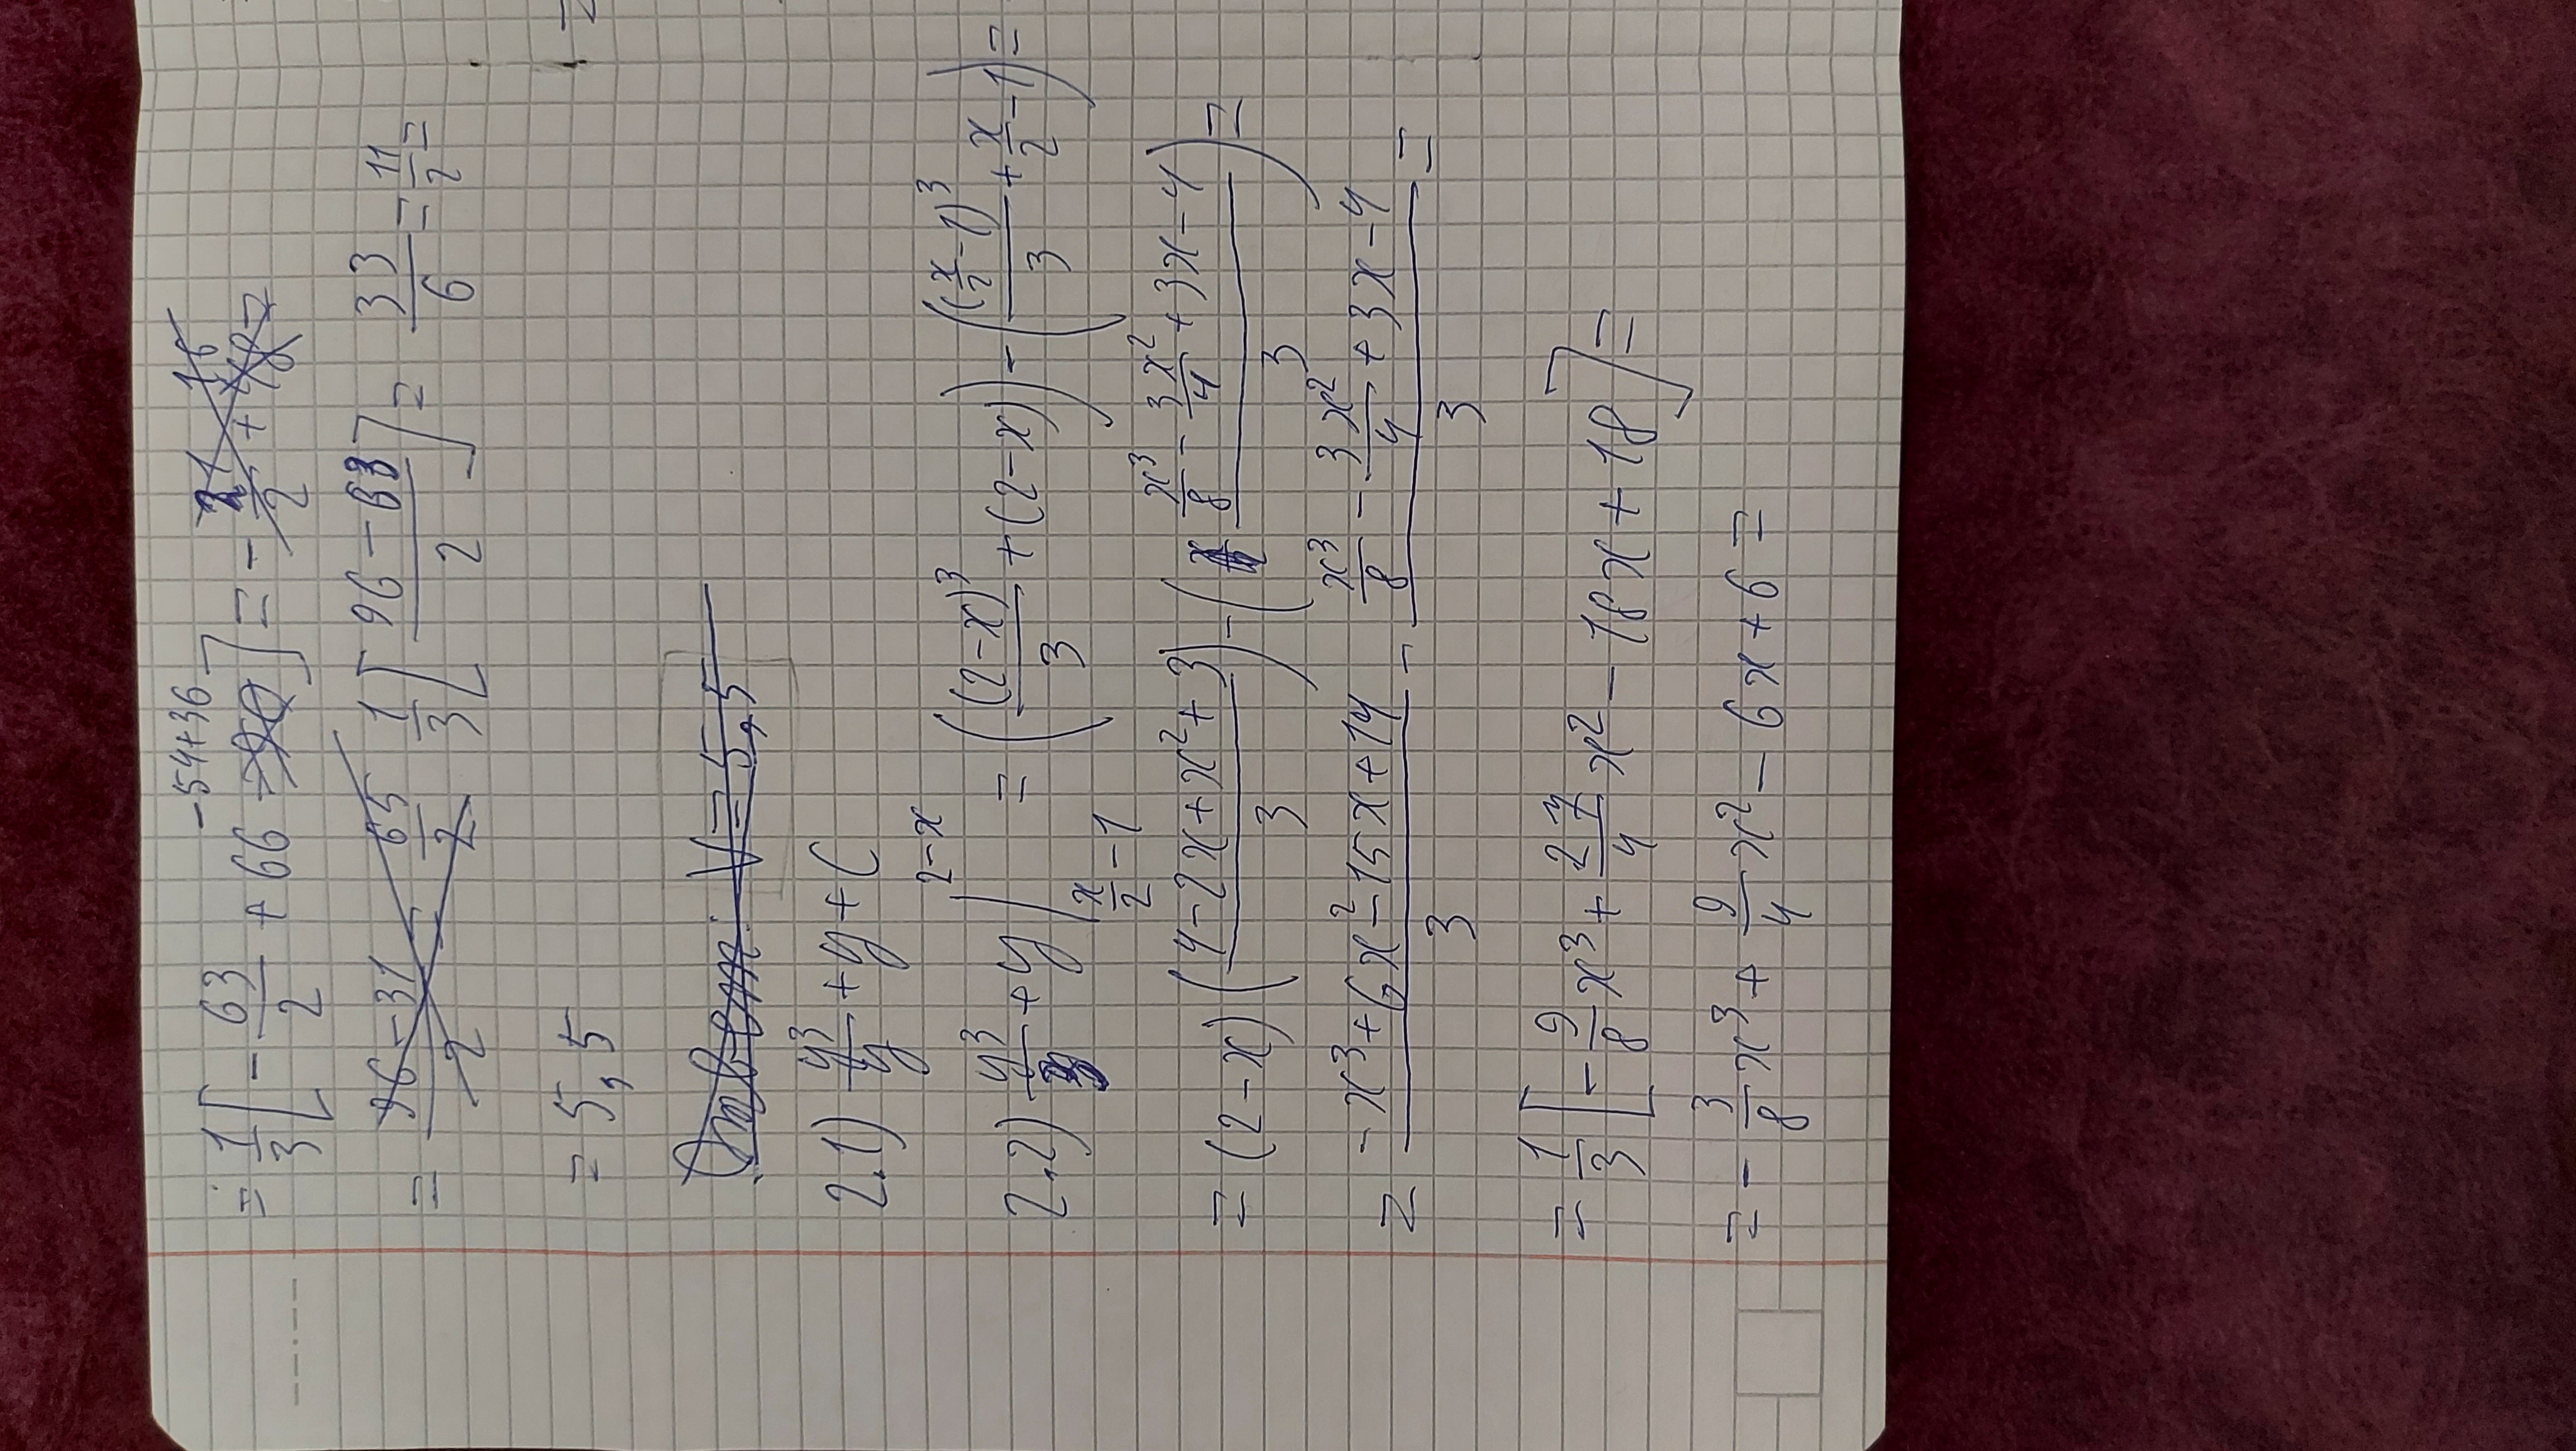 = 1/3 [ - 63/2 + 66 -90 -54+36 ] = - 21/2 + 48 16 =
= 96-31/2 = 65/2 1/3 [ 96-63/2 ] = 33/6 = 11/2 =
= 5,5
Ответ: V = 5,5
2.1) y³/y + y + C
2.2) y³/3 + y |_{x/2 - 1}^{2-x} = ( (2-x)³/3 + (2-x) ) - ( (x/2 - 1)³/3 + x/2 - 1 ) =
= (2-x) ( 4-2x+x²+3/3 ) - ( x³/8 - 3x²/4 + 3x - 4/3 ) =
= -x³+6x²-15x+14/3 - x³/8 - 3x²/4 + 3x - 4/3 =
= 1/3 [ - 9/8 x³ + 27/4 x² - 18x + 18 ] =
= - 3/8 x³ + 9/4 x² - 6x + 6 =